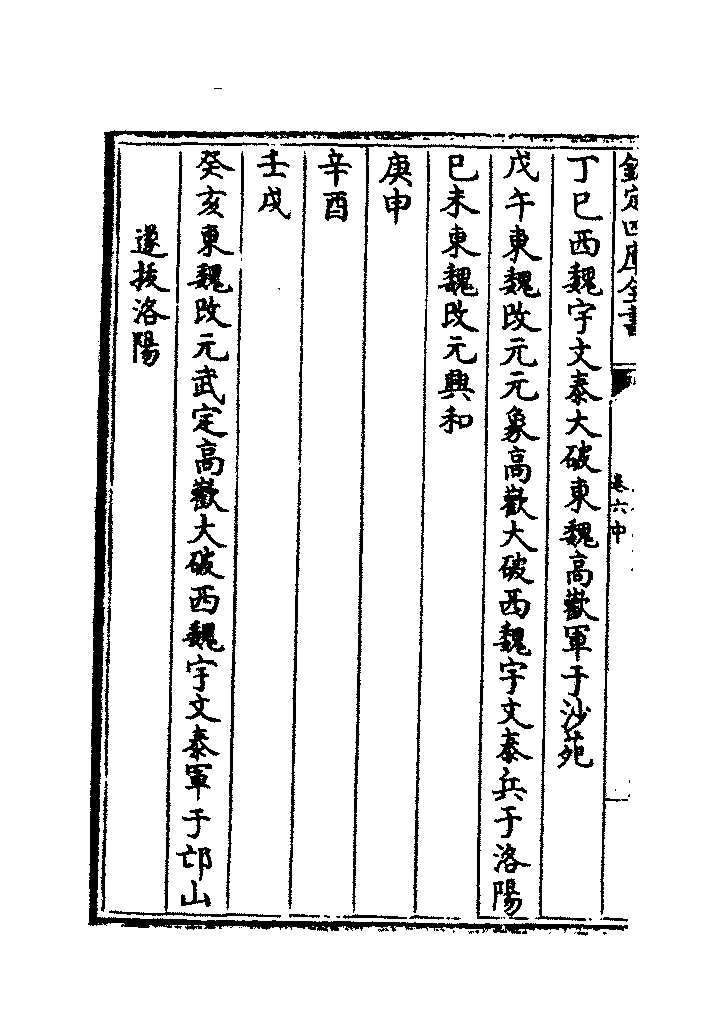 欽定四庫全書
卷六中
丁巳西魏宇文泰大破東魏高歡軍于沙苑
戊午東魏改元元象高歡大破西魏宇文泰兵于洛陽
己未東魏改元興和
庚申
辛酉
壬戌
癸亥東魏改元武定高歡大破西魏宇文泰軍于邙山
遂拔洛陽